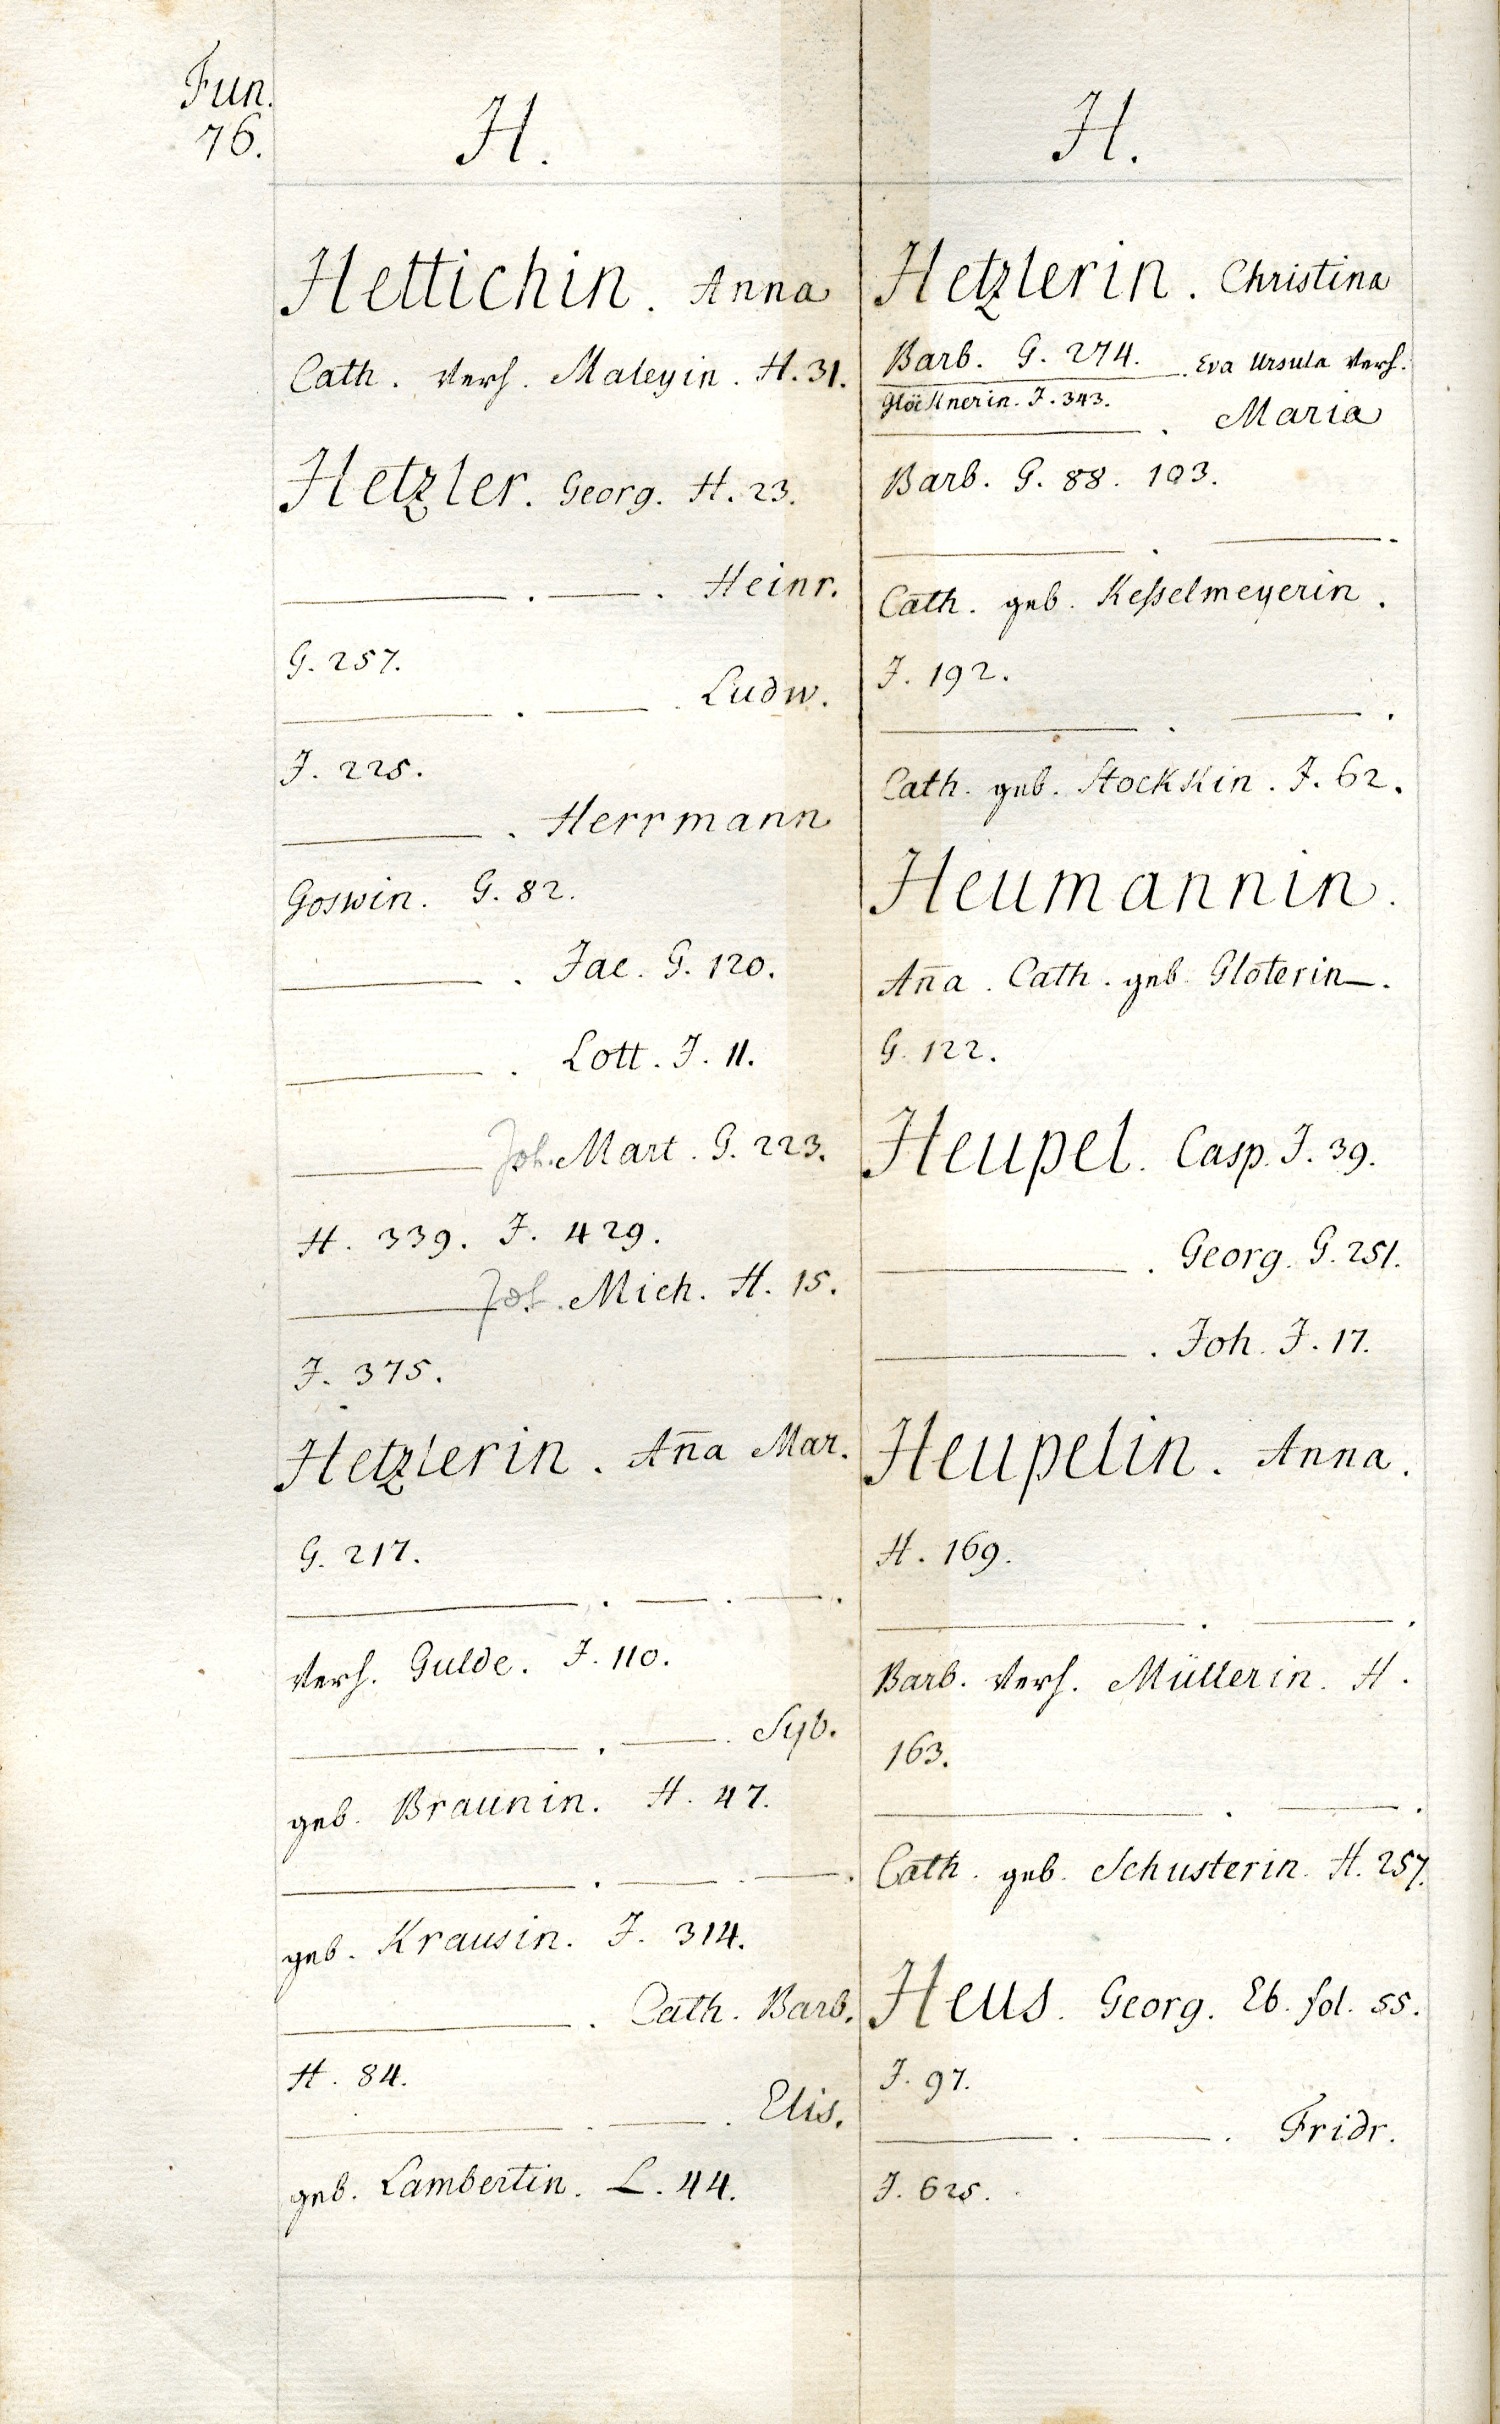 Fun.
76.
H.
Hettichin. Anna
Cath. Verh. Maleyin. H. 31.
Hetzler. Georg. H. 23.
———. —. Heinr.
G. 257.
———. —. Ludw.
J. 225.
———. Herrmann
Goswin. G. 82.
———. Jac. G. 120.
———. Lott. J. 11.
——— Joh. Mart. G. 223.
H. 339. J. 429.
——— Joh. Mich. H. 15.
J. 375.
Hetzlerin. An̄a Mar.
G. 217.
———. —. —.
Verh. Gulde. J. 110.
———. —. Syb.
geb. Braunin. H. 47.
———. —. —.
geb. Krausin. J. 314.
———. Cath. Barb.
H. 84.
———. —. Elis.
geb. Lambertin. L. 44.
H.
Hetzlerin. Christina
Barb. G. 274.
———. Eva Ursula Verh.
Glöcknerin. J. 343.
———. Maria
Barb. G. 88. 103.
———. —.
Cath. geb. Keſselmeyerin.
J. 192.
———. —.
Cath. geb. Stockkin. J. 62.
Heumannin.
An̄a. Cath. geb. Gloterin—.
G. 122.
Heupel. Casp. J. 39.
———. Georg. G. 251.
———. Joh. J. 17.
Heupelin. Anna.
H. 169.
———. —.
Barb. Verh. Müllerin. H.
163.
———. —.
Cath. geb. Schusterin. H. 257.
Heus. Georg. Eb. fol. 55.
J. 97.
———. —. Fridr.
J. 625.